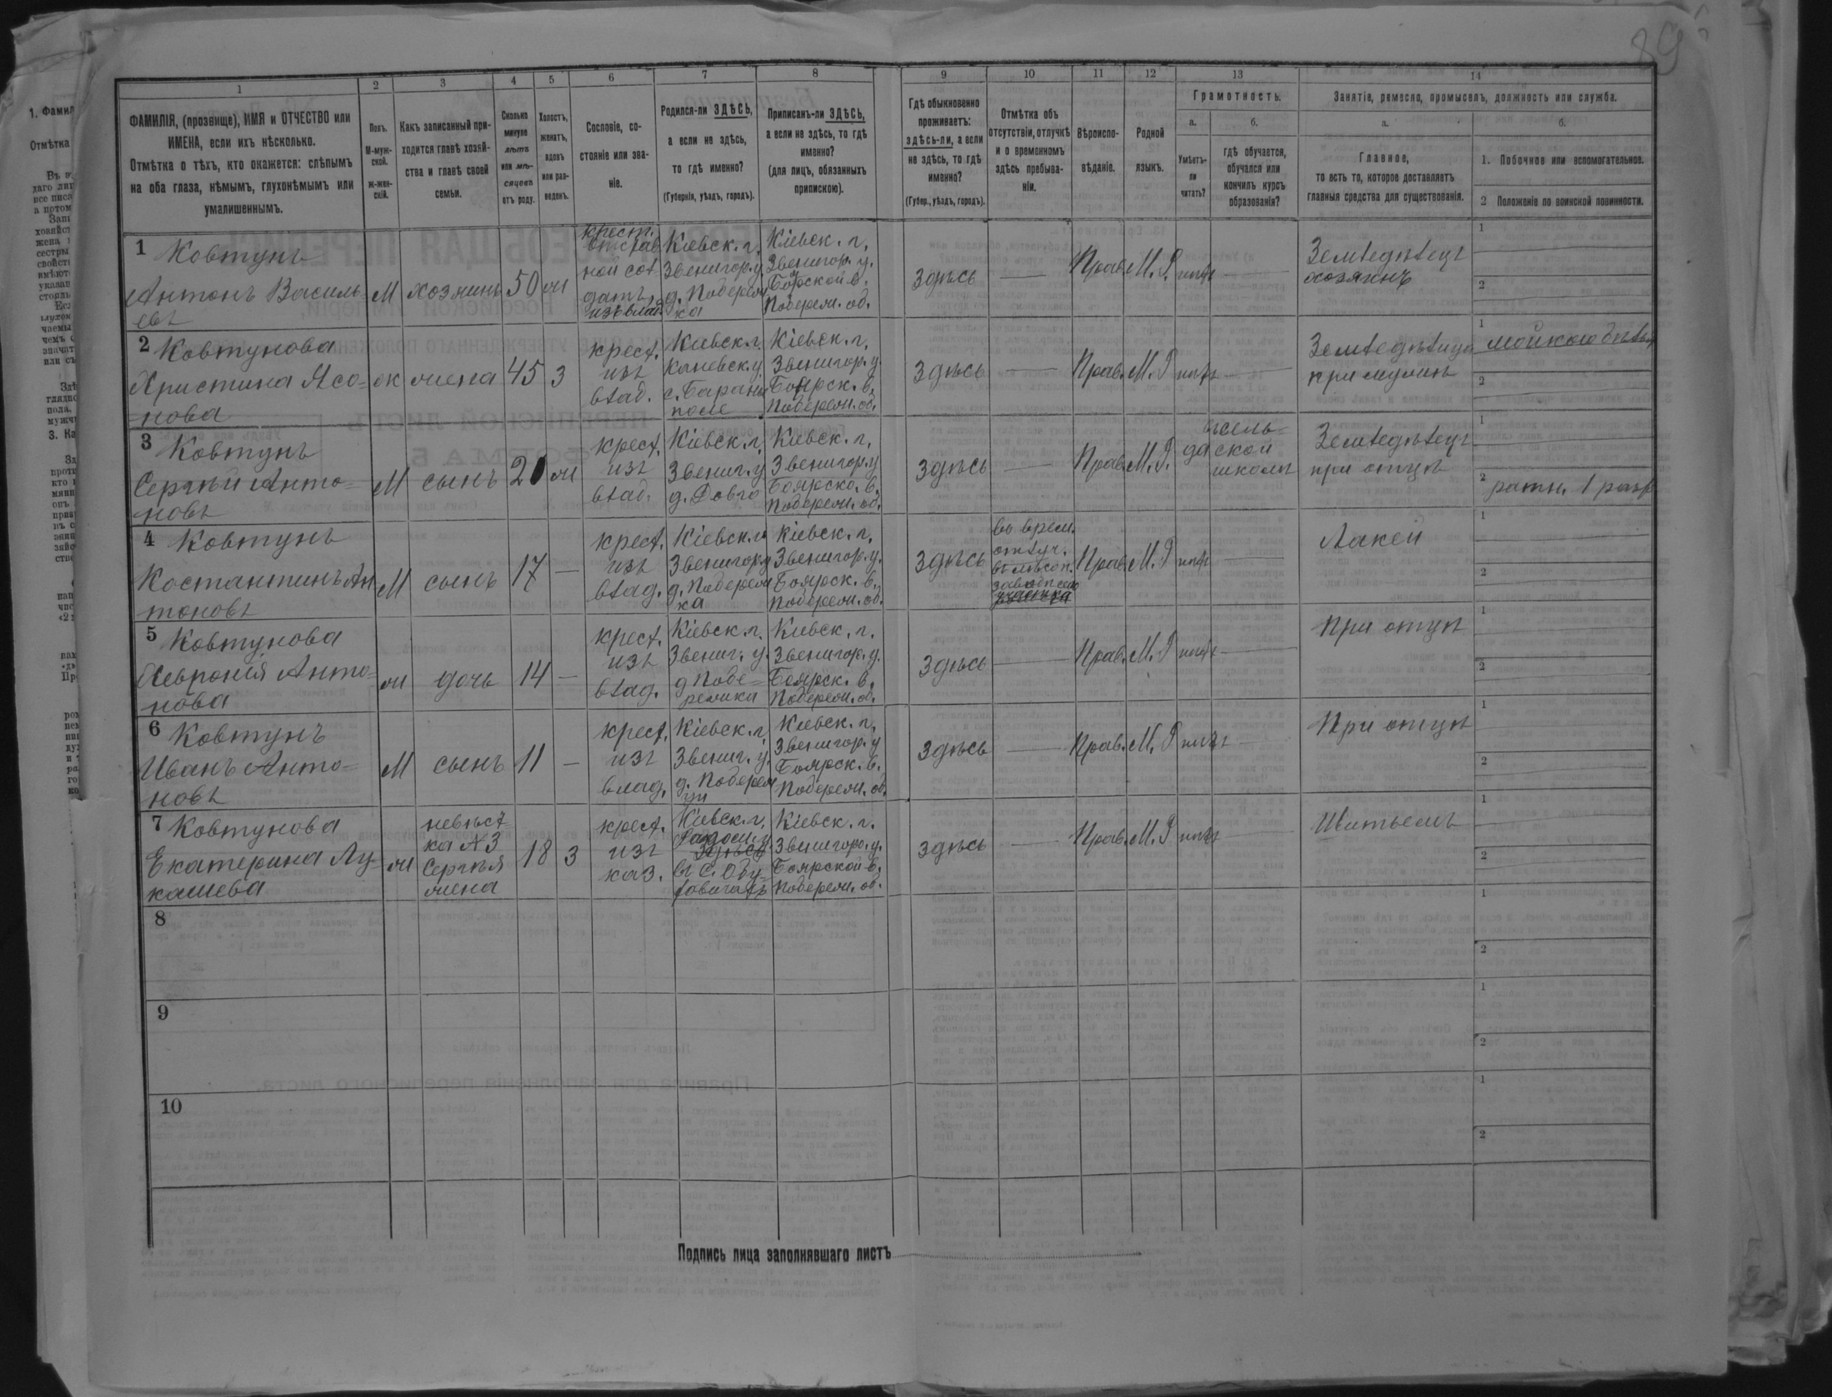 89
1 2 3 4 5 6 7 8 9 10 11 12 13 14
ФАМИЛІЯ, (прозвище), ИМЯ и ОТЧЕСТВО или
ИМЕНА, если ихъ нѣсколько.
Отмѣтка о тѣхъ, кто окажется: слѣпымъ
на оба глаза, нѣмымъ, глухонѣмымъ или
умалишеннымъ.
Полъ.
М-муж-
ской.
ж-жен-
скій.
Какъ записанный при-
ходится главѣ хозяй-
ства и главѣ своей
семьи.
Сколько
минуло
лѣтъ
или мѣ-
сяцевъ
отъ роду.
Холостъ,
женатъ,
вдовъ
или раз-
веденъ.
Сословіе, со-
стояніе или зва-
ніе.
Родился-ли ЗДѢСЬ,
а если не здѣсь,
то гдѣ именно?
(Губернія, уѣздъ, городъ).
Приписанъ-ли ЗДѢСЬ,
а если не здѣсь, то гдѣ
именно?
(для лицъ, обязанныхъ
припискою).
Гдѣ обыкновенно
проживаетъ:
здѣсь-ли, а если
не здѣсь, то гдѣ
именно?
(Губер., уѣздъ, городъ).
Отмѣтка объ
отсутствіи, отлучкѣ
и о временномъ
здѣсь пребыва-
ніи.
Вѣроиспо-
вѣданіе.
Родной
языкъ.
Грамотность.
а.
Умѣетъ-
ли
читать?
б.
гдѣ обучается,
обучался или
кончилъ курсъ
образованія?
Занятіе, ремесло, промыселъ, должность или служба.
а.
Главное,
то есть то, которое доставляетъ
главныя средства для существованія.
б.
1. Побочное или вспомогательное.
2 Положеніе по воинской повинности.
1 Ковтунъ
Антонъ Василь
евъ
М хозяинъ 50 ж
крест.
отстав
ной сол
датъ,
изъ влад.
Кіевск. г,
Звенигор. у
д. Побереж
ка
Кіевск. г,
Звенигор. у.
Боярской в.
Побереж. об.
здѣсь — Прав. М. Р. нѣтъ —
Земледѣлецъ
хозяинъ
1
2
2 Ковтунова
Христина Ясо-
нова
ж жена 45 з
крест.
изъ
влад.
Кіевск. г,
Каневск. у
с. Бараны
поле
Кіевск. г,
Звенигор. у
Боярск. в,
Побереж. об.
здѣсь — Прав. М. Р нѣтъ —
Земледѣлица
при мужѣ
1
2
3 Ковтунъ
Сергѣй Анто-
новъ
М сынъ 20 ж
крест.
изъ
влад.
Кіевск. г,
Звениг. у
Кіевск. г,
Звенигор. у
Боярской в,
Побереж. об.
здѣсь — Прав. М. Р. да
въ сель-
ской
школѣ
Земледѣлецъ
при отцѣ
1
2 ратн. 1 разр
4 Ковтунъ
Костантинъ Ан
тоновъ
М сынъ 17 —
крест.
изъ
влад.
Кіевск. г
Звенигор. у
д. Побереж
ка
Кіевск. г,
Звенигор. у.
Боярск. в,
Побереж. об.
здѣсь
во врем.
отлуч.
Прав. М. Р нѣтъ —
Лакей
1
2
5 Ковтунова
Хевронія Анто-
нова
ж дочь 14 —
крест.
изъ
влад.
Кіевск. г.
Звениг. у.
д. Побе-
режки
Кіевск. г.
Звенигор. у.
Боярск. в,
Побереж. об.
здѣсь — Прав. М. Р нѣтъ —
При отцѣ
1
2
6 Ковтунъ
Иванъ Анто-
новъ
М сынъ 11 —
крест.
изъ
влад.
Кіевск. г,
Звениг. у.
д. Побереж
Кіевск. г,
Звенигор. у
Боярск. в.
Побереж. об.
здѣсь — Прав. М. Р нѣтъ —
При отцѣ
1
2
7 Ковтунова
Екатерина Лу-
кашева
ж
невѣст
ка №3
Сергѣя
жена
18 з
крест.
изъ
каз.
Кіевск. г,
Кіевск. г.
Звенигор. у.
Боярской в,
Побереж. об.
здѣсь — Прав. М. Р нѣтъ —
Шитьемъ
1
2
8
1
2
9
1
2
10
1
2
Подпись лица заполнявшаго листъ